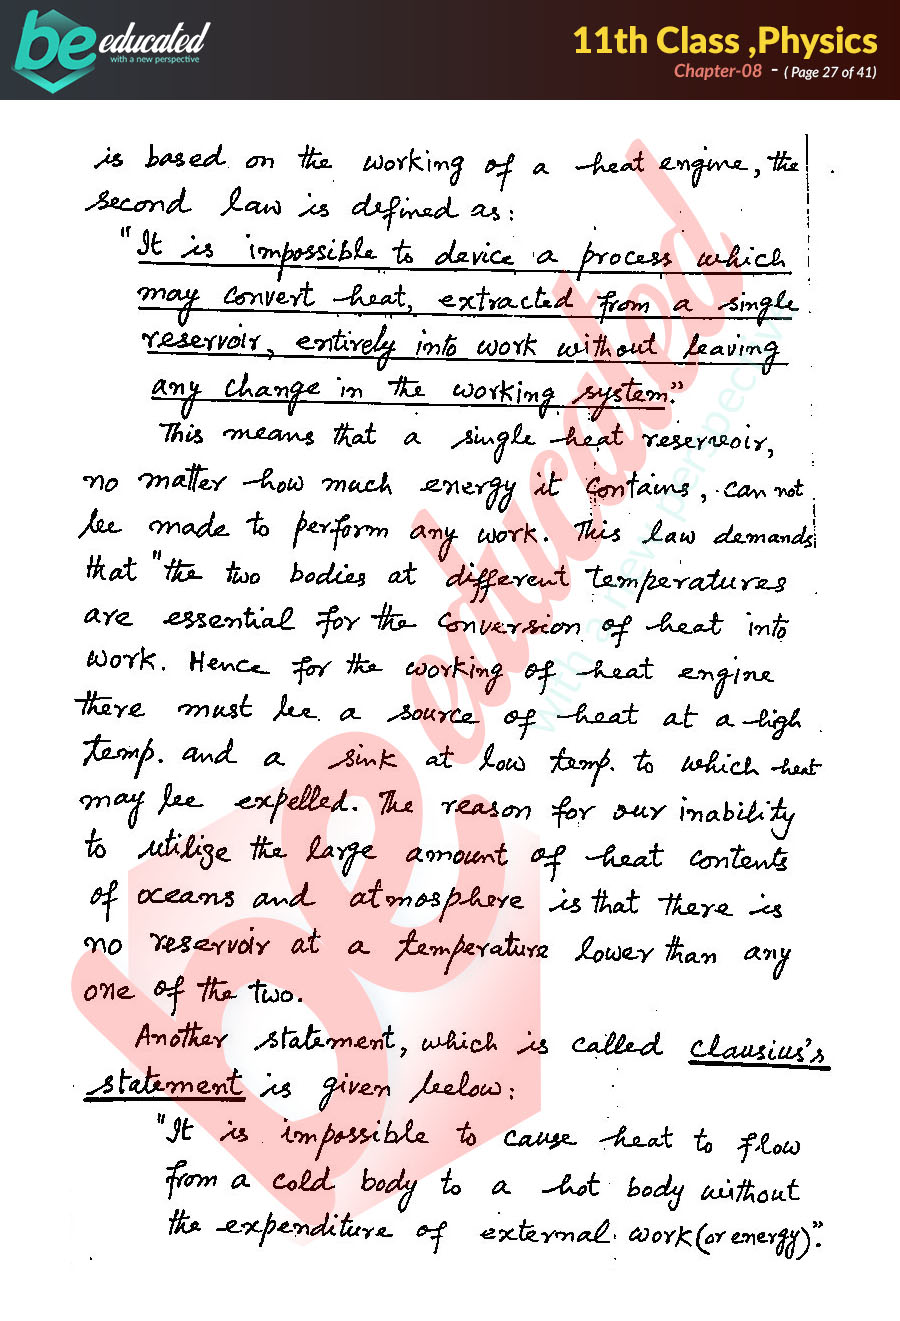 be educated
with a new perspective
11th Class ,Physics
Chapter-08 - ( Page 27 of 41)
is based on the working of a heat engine, the
second law is defined as:
"It is impossible to device a process which
may convert heat, extracted from a single
reservoir, entirely into work without leaving
any change in the working system."
This means that a single heat reservoir,
no matter how much energy it contains, can not
be made to perform any work. This law demands
that "the two bodies at different temperatures
are essential for the conversion of heat into
work. Hence for the working of heat engine
there must be a source of heat at a high
temp. and a sink at low temp. to which heat
may be expelled. The reason for our inability
to utilize the large amount of heat contents
of oceans and atmosphere is that there is
no reservoir at a temperature lower than any
one of the two.
Another statement, which is called Clausius's
statement is given below:
"It is impossible to cause heat to flow
from a cold body to a hot body without
the expenditure of external work (or energy)".
be educated
with a new perspective